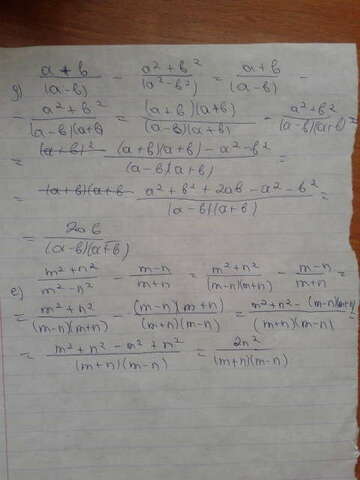 д) (a + b)/(a-b) - (a² + b²)/(a² - b²) = (a+b)/(a-b) -
- (a² + b²)/((a-b)(a+b) = ((a+b)(a+b))/((a-b)(a+b)) - (a²+b²)/((a-b)(a+b)) =
= (a+b)² ((a+b)(a+b) - a² - b²)/((a-b)(a+b)) =
= (a+b)(a+b - (a² + b² + 2ab - a² - b²)/((a-b)(a+b)) =
= 2ab/((a-b)(a+b))
е) (m² + n²)/(m² - n²) - (m-n)/(m+n) = (m² + n²)/((m-n)(m+n)) - (m-n)/(m+n) =
= (m² + n²)/((m-n)(m+n)) - ((m-n)(m+n))/((m+n)(m-n)) = (m² + n² - (m-n)(m+n))/((m+n)(m-n)) =
= (m² + n² - m² + n²)/((m+n)(m-n)) = 2n²/((m+n)(m-n))